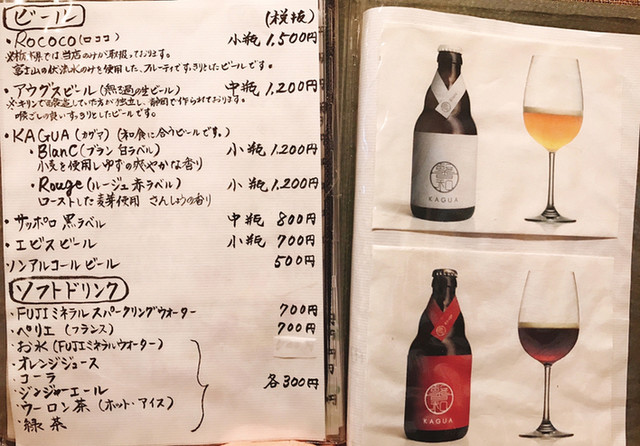 ビール (税抜)
・Rococo(ロココ) 小瓶 1,500円
※栃木県では当店のみが取扱っております。
富士山の伏流水のみを使用した、フルーティですっきりとしたビールです。
・アウグスビール(無ろ過の生ビール) 中瓶 1,200円
※キリンで製造していた方が独立し、静岡で作られております。
喉ごしの良い、すっきりとしたビールです。
・KAGUA(カグア)(和食に合うビールです。)
・Blanc(ブラン 白ラベル) 小瓶 1,200円
小麦を使用しゆずの爽やかな香り
・Rouge(ルージュ 赤ラベル) 小瓶 1,200円
ローストした麦芽使用 さんしょうの香り
・サッポロ黒ラベル 中瓶 800円
・エビスビール 小瓶 700円
ノンアルコールビール 500円
ソフトドリンク
・FUJIミネラルスパークリングウォーター 700円
・ペリエ(フランス) 700円
・お水(FUJIミネラルウォーター)
・オレンジジュース
・コーラ 各300円
・ジンジャーエール
・ウーロン茶(ホット・アイス)
・緑茶
KAGUA
KAGUA